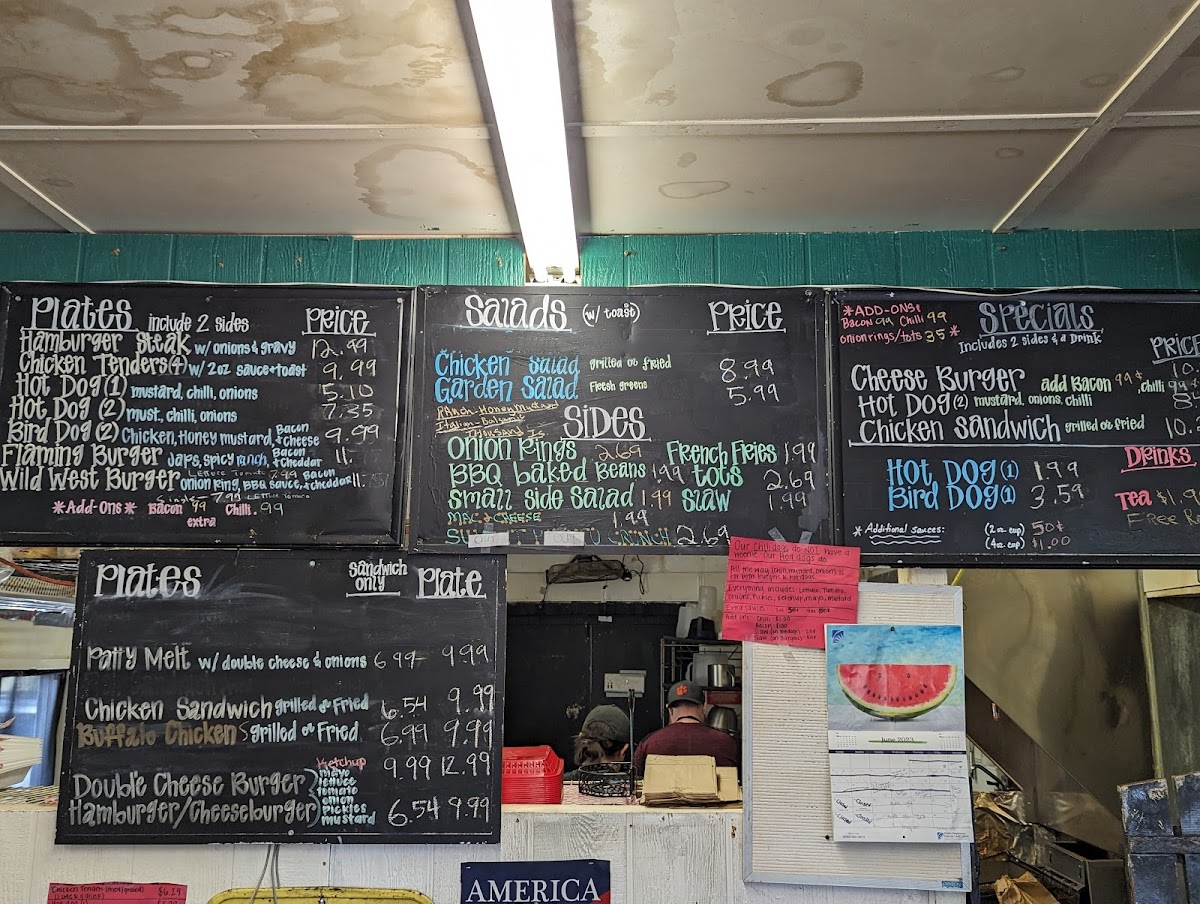 Plates include 2 sides Price
Hamburger Steak w/ onions & gravy 12.99
Chicken Tenders (4) w/ 2oz sauce + toast 9.99
Hot Dog (1) mustard, chilli, onions 5.10
Hot Dog (2) must, chilli, onions 7.35
Bird Dog (2) Chicken, Honey mustard, Bacon & cheese 9.99
Flaming Burger Japs, spicy ranch, Bacon & cheddar 11.-
Wild West Burger onion ring, BBQ sauce, Bacon & cheddar
*Add-Ons* Bacon 99 Chilli .99
extra
Salads (w/ toast) Price
Chicken Salad grilled or fried 8.99
Garden Salad Fresh greens 5.99
Ranch-Honey Mustard
Italian-Balsamic
Thousand Is
Sides
Onion Rings 2.69 French Fries 1.99
BBQ baked Beans 1.99 tots 2.69
small side salad 1.99 slaw 1.99
Mac & Cheese 1.99
CRUNCH 2.69
OUT OUT
*ADD-ONS:
Bacon 99 Chilli 99
onion rings/tots 35*
Specials
Includes 2 sides & a Drink
PRICE
Cheese Burger add Bacon 99¢, chilli 99
Hot Dog (2) mustard, onions, chilli
Chicken Sandwich grilled or fried 10.
Hot Dog (1) 1.99
Bird Dog (1) 3.59
Drinks
Tea $1.9
Free R
*Additional Sauces: (2oz cup) 50¢
(4oz cup) $1.00
Plates Sandwich only Plate
Patty Melt w/ double cheese & onions 6.99 9.99
Chicken Sandwich grilled or Fried 6.54 9.99
Buffalo Chicken S grilled or Fried 6.99 9.99
Double Cheese Burger 9.99 12.99
Hamburger/Cheeseburger 6.54 9.99
Ketchup
mayo
lettuce
tomato
onion
pickles
mustard
Our Chili dogs do NOT have a
weenie. Our Hot dogs do.
June 2023
Chicken Tenders $6.29
AMERICA